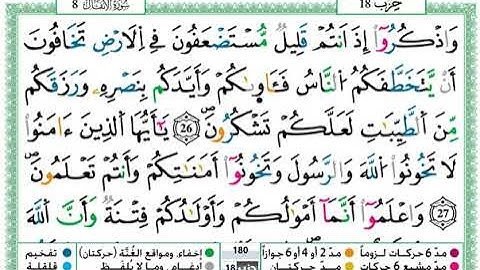 حزب 18 سورة الأنفال 8
وَاذْكُرُوٓاْ إِذَ اَنتُمْ قَلِيلٌ مُّسْتَضْعَفُونَ فِے اِلَارْضِ تَخَافُونَ
أَنْ يَّتَخَطَّفَكُمُ النَّاسُ فَـَٔاو۪يٰكُمْ وَأَيَّدَكُم بِنَصْرِهِۦ وَرَزَقَكُم
مِّنَ اَلطَّيِّبَٰتِ لَعَلَّكُمْ تَشْكُرُونَ 26 يَٰٓأَيُّهَا اَلذِينَ ءَامَنُواْ
لَا تَخُونُواْ اُللَّهَ وَالرَّسُولَ وَتَخُونُوٓاْ أَمَٰنَٰتِكُمْ وَأَنتُمْ تَعْلَمُونَ
27 وَاعْلَمُوٓاْ أَنَّمَآ أَمْوَٰلُكُمْ وَأَوْلَٰدُكُمْ فِتْنَةٌ وَأَنَّ اَللَّهَ
مدّ 6 حركات لزوماً مدّ 2 أو 4 أو 6 جوازاً 180 إخفاء، ومواقع الغُنَّة (حركتان) تفخيم
مدّ مشبع 6 حركات مدّ حركتان إدغام، وما لا يُلفظ قلقلة